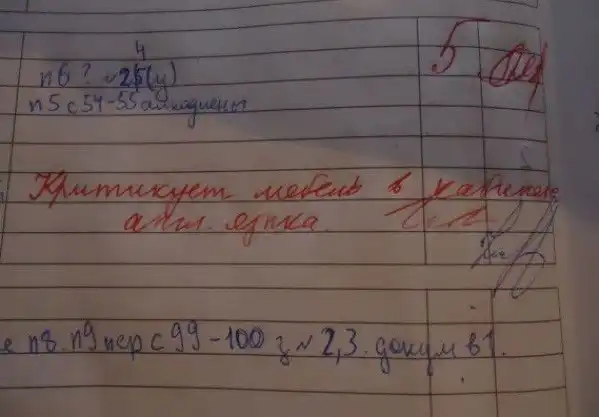 4
п6? №25(у) 5
п5 с 54-55 алкадиены
Критикует мебель в кабинете
англ. языка.
п8. п9 пер с 99-100 з №2,3. докум в 1.